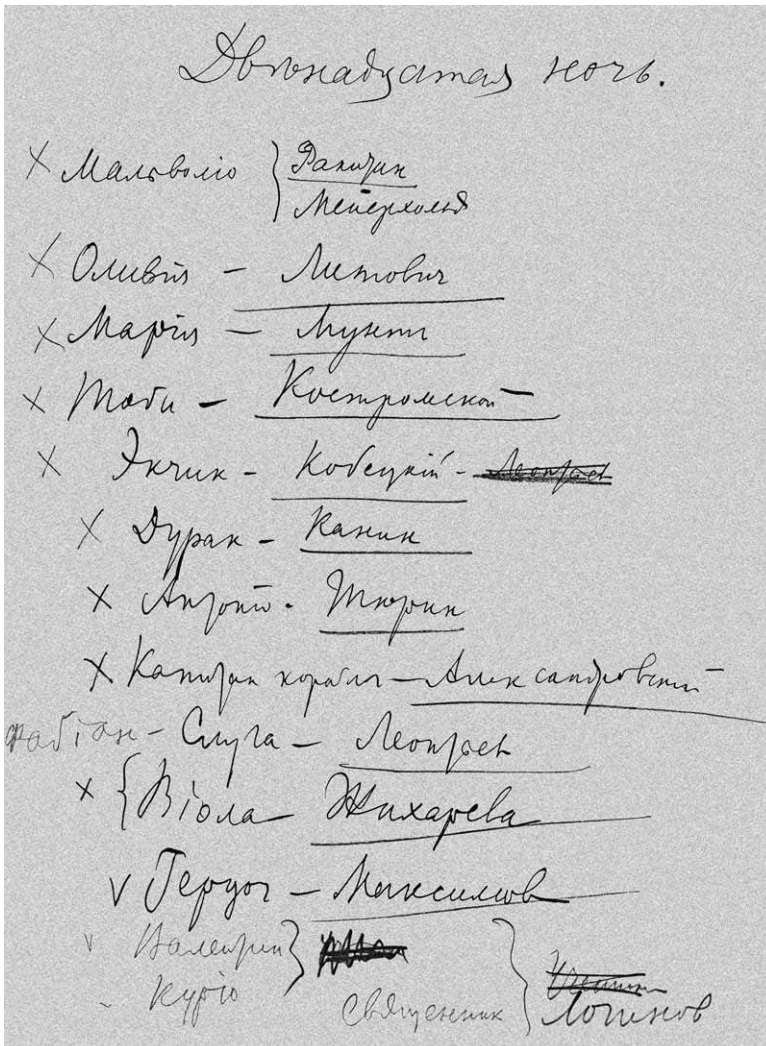 Двѣнадцатая ночь.
× Мальволіо } Ракитин
Мейерхольд
× Оливія – Литович
× Марія – Мунт
× Тоби – Костромской
× Экчик – Кобецкій – Леонтьев
× Дурак – Канин
× Антоніо. Тюрин
× Капитан корабля – Александровский
Фабіан – Слуга – Леонтьев
× { Віола – Жихарева
v Герцог – Максимов
v Валентин }
Куріо Священник } Логинов